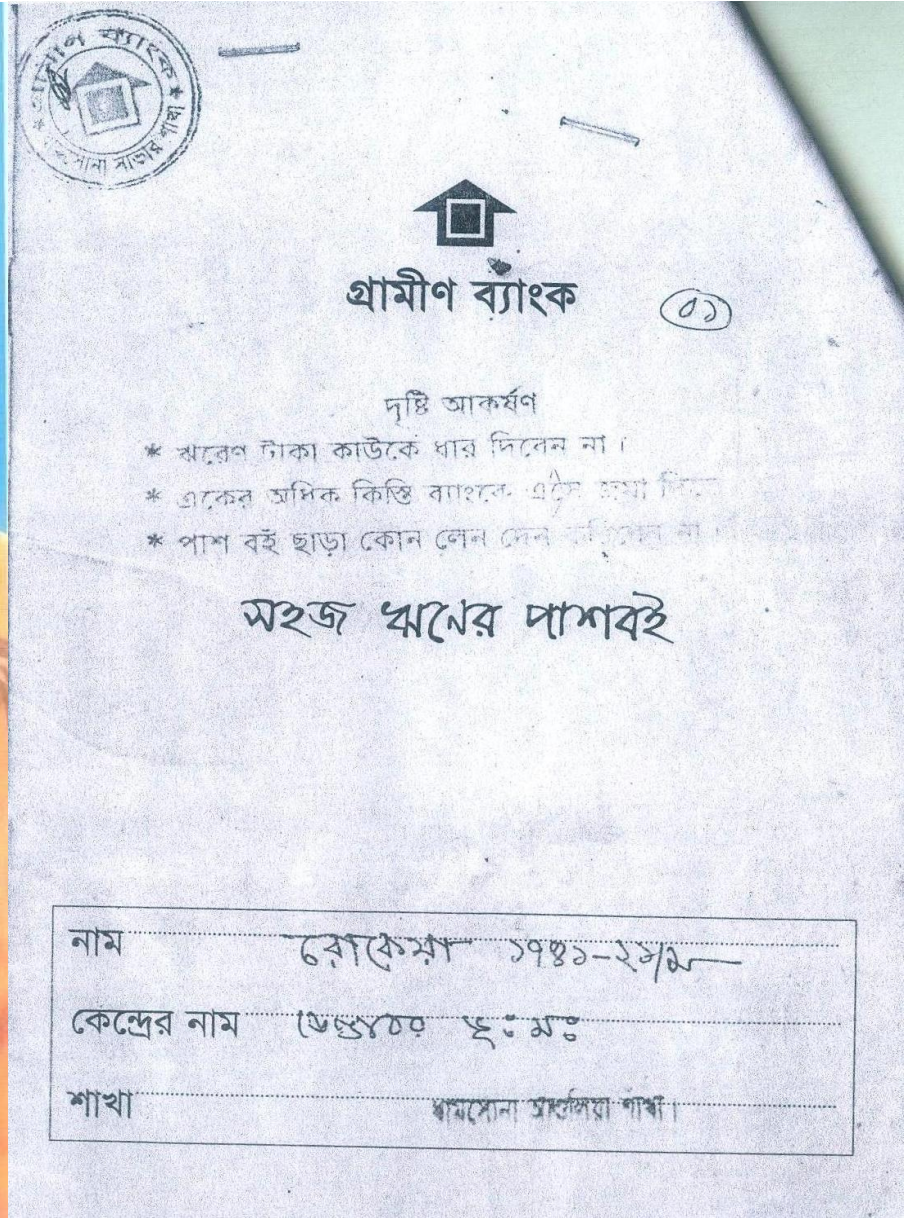 গ্রামীণ ব্যাংক
সাভার শাখা
গ্রামীণ ব্যাংক
০১
দৃষ্টি আকর্ষণ
* ঋণের টাকা কাউকে ধার দিবেন না।
* একের অধিক কিস্তি ব্যাংকে এসে জমা
* পাশ বই ছাড়া কোন লেন দেন করিবেন না
সহজ ঋনের পাশবই
নাম রোকেয়া ১৭৪১-২১/ম
কেন্দ্রের নাম ভূঃ মঃ
শাখা ধামসোনা আশুলিয়া শাখা।